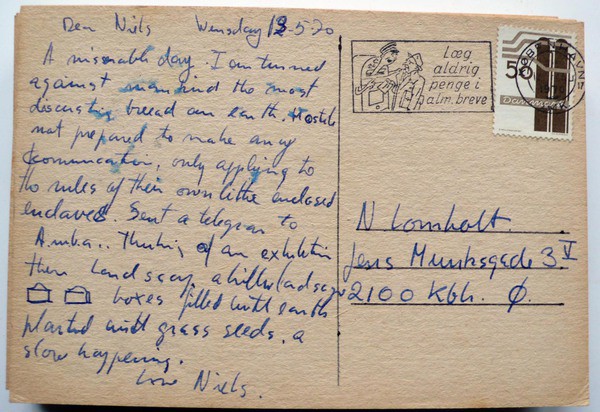 Dear Niels Wensday 13-5-70
A miserable day. I am turned
against mankind the most
discusting bread on earth. Hostile
not prepared to make any
communication, only applying to
the rules of their own little enclosed
enclaves. Sent a telegram to
Amba.. Thinking of an exhibition
then landscap, a
boxes filled with earth
planted with grass seeds, a
slow happening.
Love Niels.
Læg
aldrig
penge i
alm. breve
KØBENHAVN
50
DANMARK
N Lomholt.
Jens Munksgade 3. V
2100 Kbh. Ø.